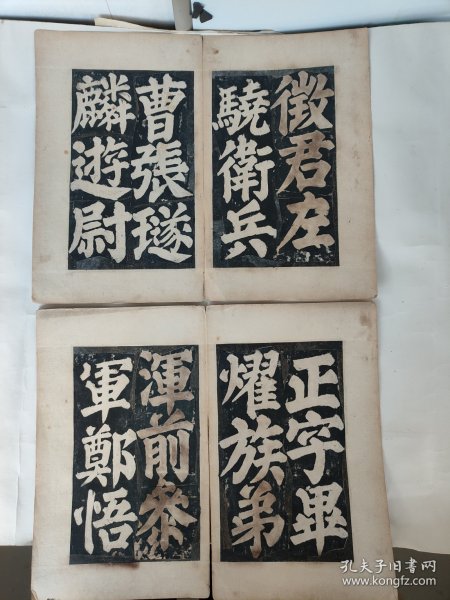 徵君左
驍衛兵
曹張璲
麟遊尉
正字畢
燿族弟
渾前參
軍鄭悟
孔夫子旧书网
www.kongfz.com